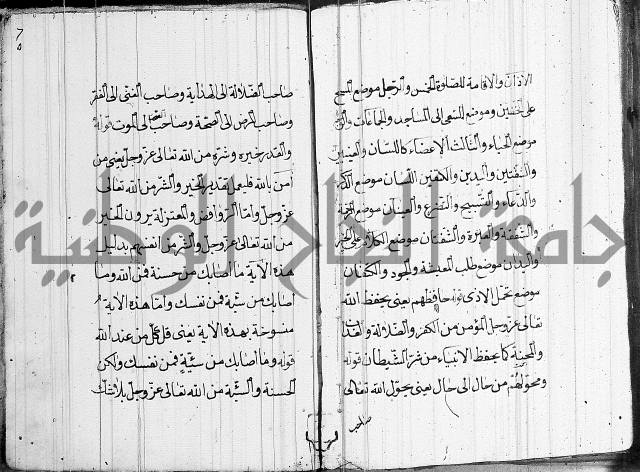 الاذان والاقامة للصلوة الخمس والرجل موضع المسح
على الخفين وموضع السعي الى المساجد والجماعات والوجه
موضع الحياء والثالث الاعضاء كاللسان والعينين
والشفتين واليدين والكفين اللسان موضع الذكر
والدعاء والتسبيح والتضرع والعينان موضع
والشفقة والعبرة والشفتان موضع الكلام على الخير
واليدان موضع طلب المعيشة والجود والكفان
موضع تحمل الاذى قوله حافظهم يعني يحفظ الله
تعالى عز وجل المؤمن من الكفر والضلالة
والمحنة كما يحفظ الانبياء من شر الشيطان قوله
ومحولهم من حال الى حال يعني يحول الله تعالى
صاحب
صاحب الضلالة الى الهداية وصاحب الغنى الى الفقر
وصاحب المرض الى الصحة وصاحب الى الموت قوله
والقدر خيره وشره من الله تعالى عز وجل يعني من
آمن بالله فليعلم تقدير الخير والشر من الله تعالى
عز وجل واما الروافض والمعتزلة يرون الخير
من الله تعالى عز وجل والشر من انفسهم بدليل
هذه الآية ما اصابك من حسنة فمن الله وما
اصابك من سيئة فمن نفسك واما هذه الاية
منسوخة بهذه الاية يعني قل كل من عند الله
قوله وما اصابك من سيئة فمن نفسك ولكن
الحسنة والسيئة من الله تعالى عز وجل بلا شك
جامعة النجاح الوطنية